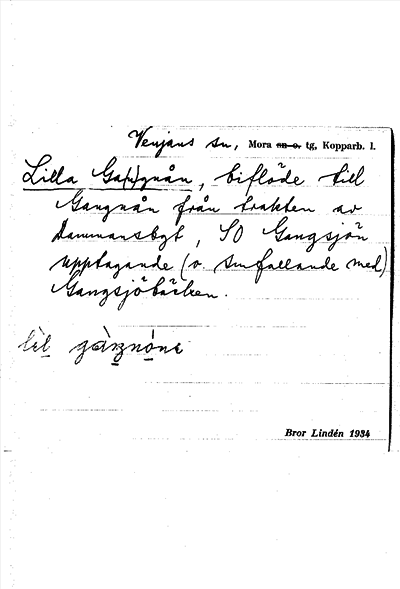 Venjans sn, Mora sn o. tg, Kopparb. l.
Lilla Ga(n)gnån, biflöde till
Gangnån från trakten av
Dammansbgt, SO Gangsjön
upptagande (o. smfallande med)
Gangsjöbäcken.
lìl gàŋnóne
Bror Lindén 1934